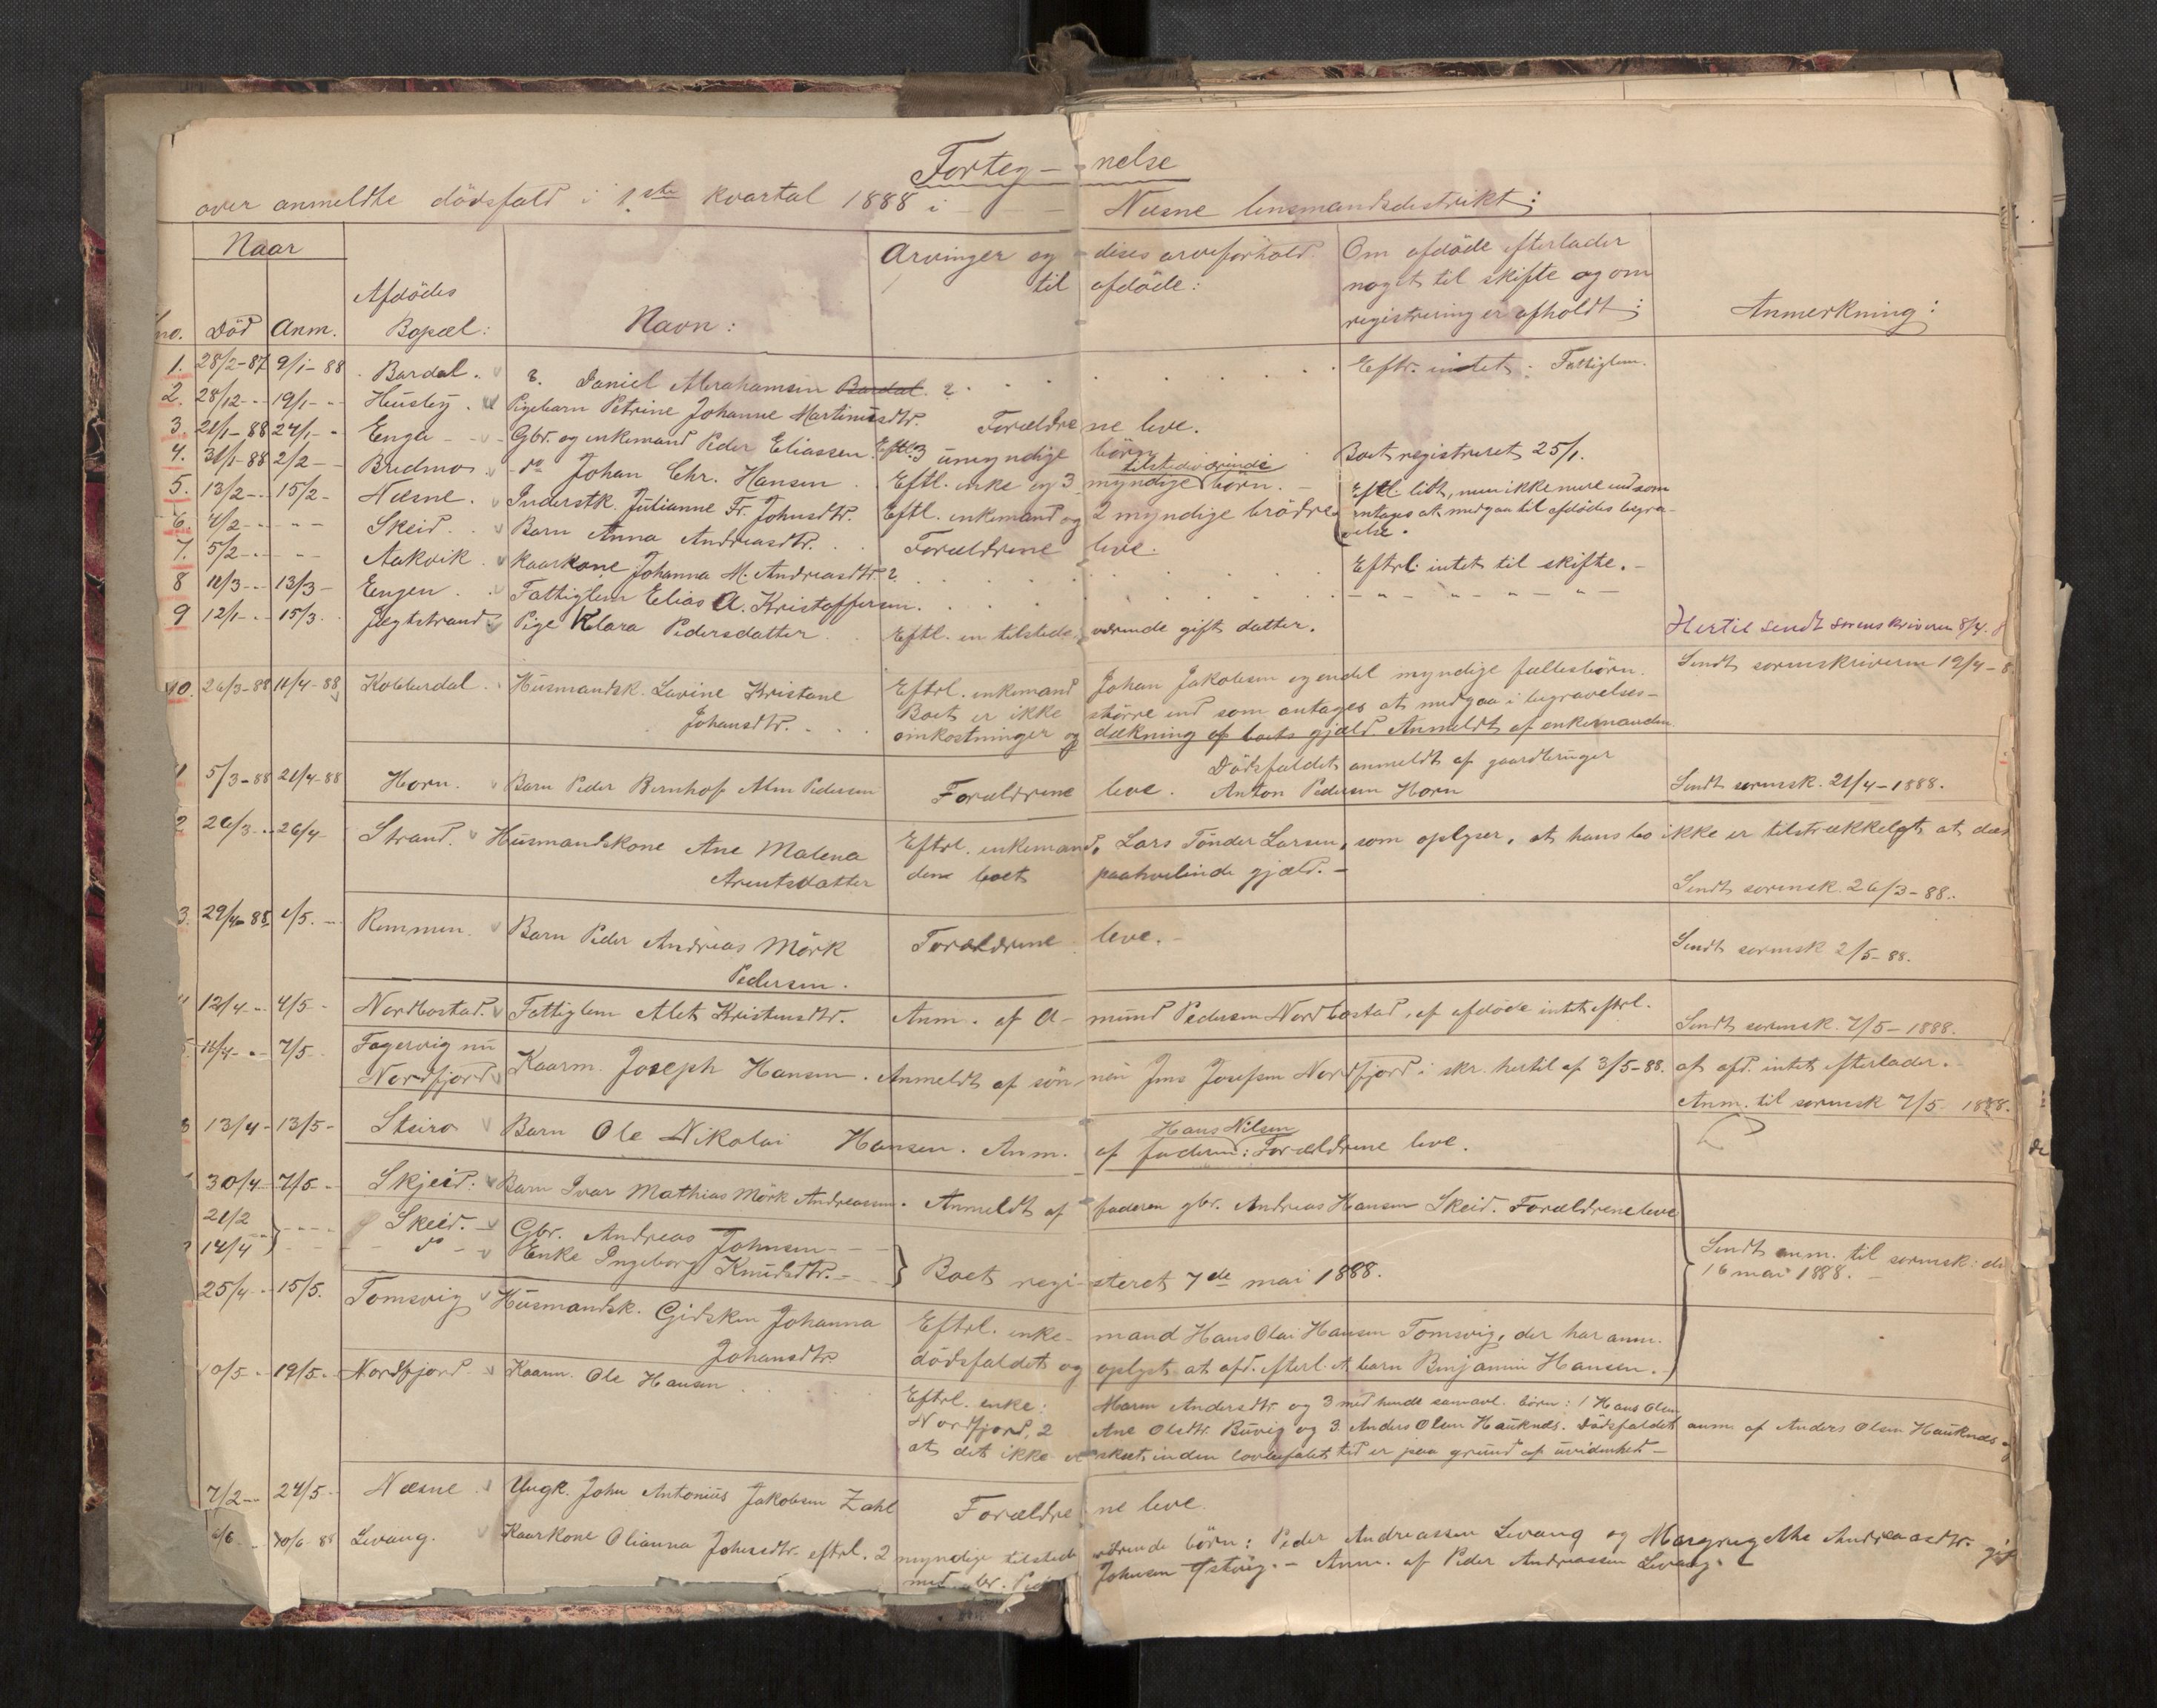 Forteg- nelse
over anmeldte dödsfald i 1ste kvartal 1888 i Næsne lensmandsdistrikt:
Naar
no. Död Anm. Afdödes Bopæl: Navn: Arvinger og disses arveforhold til afdöde: Om afdöde efterlader noget til skifte og om registrering er afholdt: Anmerkning:
1. 28/2-87 9/1-88 Bardal. Daniel Abrahamsen Bardal ? Eftr. intet. Fattiglem.
2. 28/12 19/1 Husby. Pigebarn Petrine Johanne Martinusdtr. Forældrene leve.
3. 21/1-88 24/1 Enge Gbr. og enkemand Peder Eliassen. Eftl. 3 umyndige börn Boet registreret 25/1.
4. 31/1-88 2/2 Bredmo do Johan Chr. Hansen. Eftl. enke og 3 myndige tilstedeværende börn.
5. 13/2 15/2 Næsne. Inderstk. Julianne Fr. Johnsdtr. Eftl. enkemand og 2 myndige brödre Eftl. lidt, men ikke mere end som
antages at medgaa til afdödes begra-
velse.
6. 4/2 Skeid. Barn Anna Andreasdtr. Forældrene leve.
7. 5/2 Aakvik. Kaarkone Johanna M. Andreasdtr. ? Eftrl. intet til skifte.
8 11/3 13/3 Engen. Fattiglem Elias A. Kristoffersen.
9 12/1 15/3. Jægtstrand Pige Klara Pedersdatter. Eftl. en tilstedeværende gift datter. Hertil sendt sorenskriveren 8/4.
10. 26/3-88 11/4-88 Kobberdal. Husmandsk. Lovine Kristane Eftrl. enkemand Johan Jakobsen og endel myndige fællesbörn. Sendt sorenskriveren 12/4-8
Johansdtr. Boet er ikke större end som antages at medgaa i begravelses-
omkostninger og dækning af boets gjæld. Anmeldt af enkemanden
5/3-88 21/4-88 Horn. Barn Peder Bernhof Alm Pedersen Forældrene leve. Dödsfaldet anmeldt af gaardbruger
Anton Pedersen Horn Sendt sorensk. 21/4-1888.
2 26/3 26/4 Strand. Husmandskone Ane Malena Eftrl. enkemand, Lars Tönder Larsen, som oplyser, at hans bo ikke er tilstrækkeligt at dæk
Arentsdatter dene boet paahvilende gjæld. Sendt sorensk. 26/3-88.
3. 29/4-88. 1/5. Remmen. Barn Peder Andreas Mörk Forældrene leve. Sendt sorensk 2/5-88.
Pedersen.
12/4 4/5 Nordbostad. Fattiglem Alet Kristensdtr. Anm. af A- mund Pedersen Nordbostad, af afdöde intet eftrl. Sendt sorensk. 7/5-1888.
11/4 7/5 Fagervig nu
Nordfjord Kaarm. Joseph Hansen. Anmeldt af sön- nen Jens Josefsen Nordfjord i skr. hertil af 3/5-88. at afd. intet efterlader.
Anm. til sorensk 7/5 1888.
13/4 13/5 Steiro Barn Ole Nikolai Hansen. Anm. af faderen Hans Nilsen: Forældrene leve.
30/4 7/5 Skjeid. Barn Ivar Mathias Mörk Andreassen. Anmeldt af faderen gbr. Andreas Hansen Skeid. Forældrene leve
21/2 Skeid. Gbr. Andreas Johnsen
14/4 do Enke Ingeborg Knudsdtr. Boet registeret 7de mai 1888. Sendt anm. til sorensk. d.
16 mai 1888.
25/4 15/5. Tomsvig Husmandsk. Gidsken Johanna Eftrl. enke- mand Hans Olai Hansen Tomsvig, der har anm.
Johansdtr. dödsfaldet og oplyst, at afd. efterl. et barn Benjamin Hansen.
0/5 19/5 Nordfjord Kaarm. Ole Hansen Eftrl. enke: Maren Andersdtr og 3 med hende sammavl. börn: 1 Hans Olsen
Nordfjord, 2 Ane Olsdtr. Buvig og 3. Anders Olsen Hauknes. Dödsfaldet anm. af Anders Olsen Hauknes
at det ikke er skeet inden lovbefalet tid er paa grund af uvidenhed
7/2 24/5 Næsne Ungk. John Antonius Jakobsen Zahl Forældrene leve.
6/6 10/6-88 Levang. Kaarkone Olianna Johnsdtr. eftrl. 2 myndige tilstedeværende börn: Peder Andreassen Levang og Margrugethe Andreasdtr. gift
med gbr. Ped Johnsen Ystvig. - Anm. af Peder Andreassen Levang.